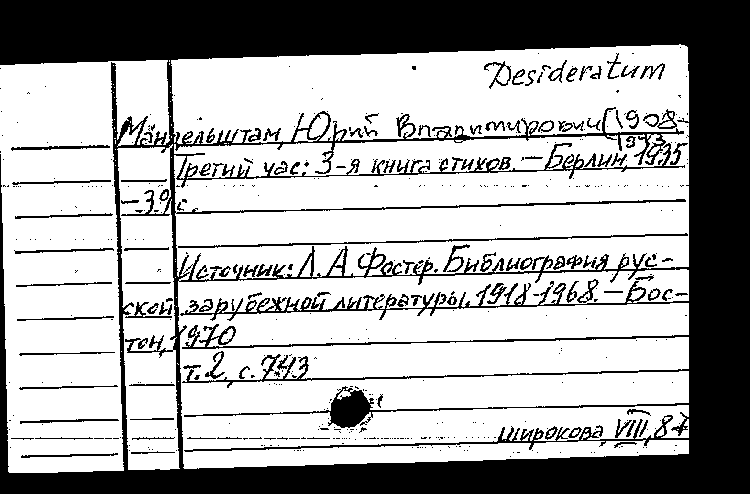 Desideratum
Мандельштам, Юрий Владимирович [1908-
1943
Третий час: 3-я книга стихов. — Берлин, 1935
— 39 с.
Источник: Л. А. Фостер. Библиография рус-
ской зарубежной литературы. 1918-1968. — Бос-
тон, 1970
т. 2, с. 743
Широкова, VIII, 87